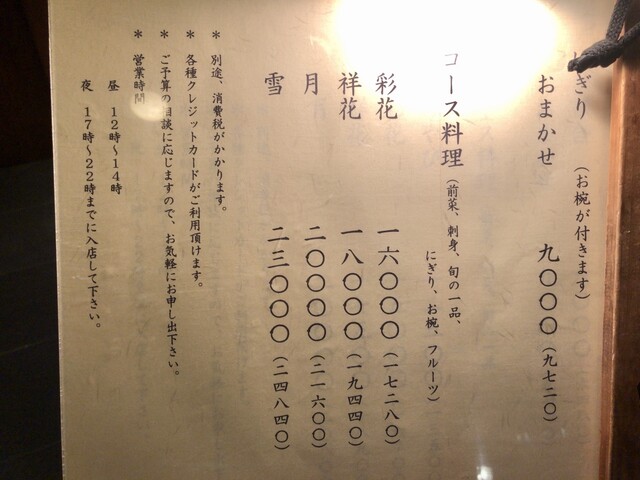 にぎり（お椀が付きます）
おまかせ 九〇〇〇（九七二〇）
コース料理（前菜、刺身、旬の一品、
にぎり、お椀、フルーツ）
彩花 一六〇〇〇（一七二八〇）
祥花 一八〇〇〇（一九四四〇）
月 二〇〇〇〇（二一六〇〇）
雪 二三〇〇〇（二四八四〇）
＊ 別途、消費税がかかります。
＊ 各種クレジットカードがご利用頂けます。
＊ ご予算の相談に応じますので、お気軽にお申し出下さい。
＊ 営業時間
昼 １２時〜１４時
夜 １７時〜２２時までに入店して下さい。